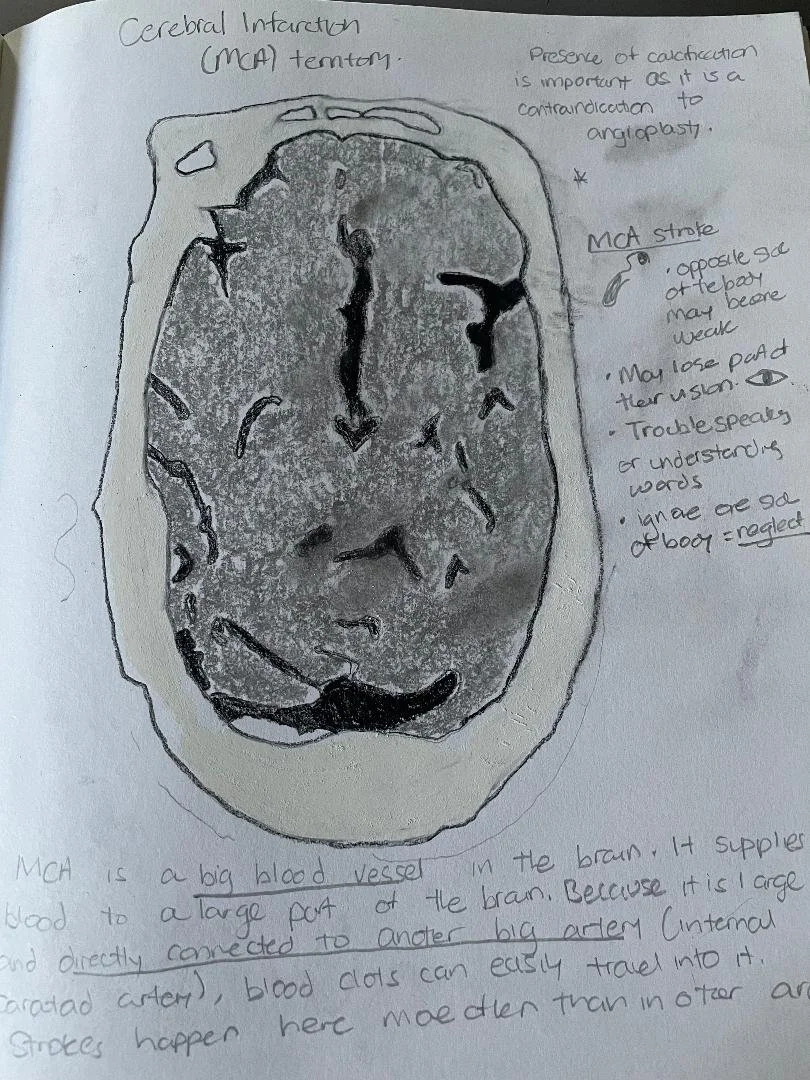 Cerebral Infarction
(MCA) territory.
Presence of calcification
is important as it is a
contraindication to
angioplasty.
*
MCA stroke
• opposite side
of the body
may become
weak
• May lose part of
their vision.
• Trouble speaking
or understanding
words
• ignore one side
of body = neglect
MCA is a big blood vessel in the brain. It supplies
blood to a large part of the brain. Because it is large
and directly connected to another big artery (internal
caratad artery), blood clots can easily travel into it.
Strokes happen here more often than in other